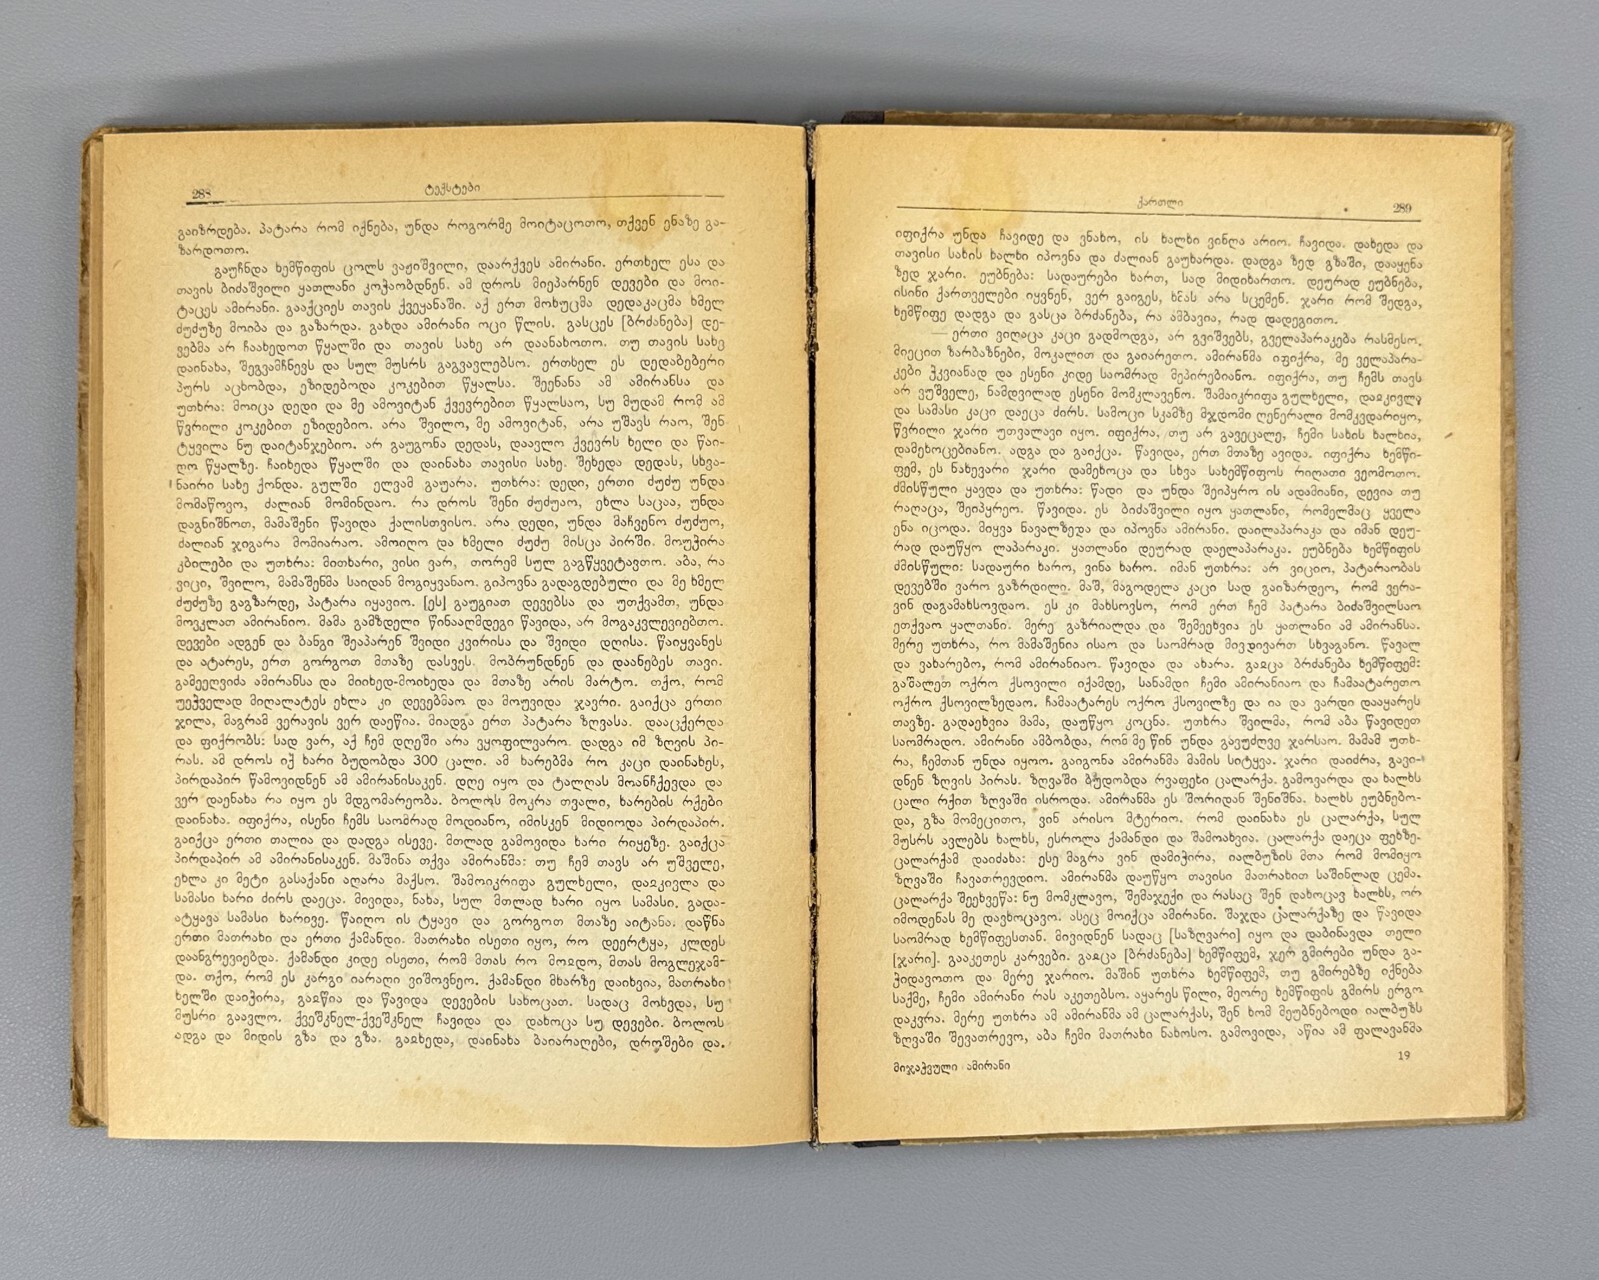 288
ტექსტები
გაიზრდება. პატარა რომ იქნება, უნდა როგორმე მოიტაცოთო, თქვენ ენაზე გა-
ზარდოთო.
გაუჩნდა ხემწიფის ცოლს ვაჟიშვილი, დაარქვეს ამირანი. ერთხელ ესა და
თავის ბიძაშვილი ყათლანი კოჭაობდნენ. ამ დროს მიეპარნენ დევები და მოი-
ტაცეს ამირანი. გააქციეს თავის ქვეყანაში. აქ ერთ მოხუცმა დედაკაცმა ხმელ
ძუძუზე მოიბა და გაზარდა. გახდა ამირანი ოცი წლის. გასცეს [ბრძანება] დე-
ვებმა არ ჩაახედოთ წყალში და თავის სახე არ დაანახოთო. თუ თავის სახე
დაინახა, შეგვამჩნევს და სულ მუსრს გაგვავლებსო. ერთხელ ეს დედაბებერი
პურს აცხობდა, ეზიდებოდა კოკებით წყალსა. შეენანა ამ ამირანსა და
უთხრა: მოიცა დედი და მე ამოვიტან ქვევრებით წყალსაო, სუ მუდამ რომ ამ
წვრილი კოკებით ეზიდებიო. არა შვილო, მე ამოვიტან, არა უშავს რაო, შენ
ტყვილა ნუ დაიტანჯებიო. არ გაუგონა დედას, დაავლო ქვევრს ხელი და წაი-
ღო წყალზე. ჩაიხედა წყალში და დაინახა თავისი სახე. შეხედა დედას, სხვა-
ნაირი სახე ქონდა. გულში ელვამ გაუარა. უთხრა: დედი, ერთი ძუძუ უნდა
მომაწოვო, ძალიან მომინდაო. რა დროს შენი ძუძუაო, ეხლა საცაა, უნდა
დაგნიშნოთ, მამაშენი წავიდა ქალისთვისო. არა დედი, უნდა მაჩვენო ძუძუო,
ძალიან ჯიგარა მომიარაო. ამოიღო და ხმელი ძუძუ მისცა პირში. მოუჭირა
კბილები და უთხრა: მითხარი, ვისი ვარ, თორემ სულ გაგწყვეტავთო. აბა, რა
ვიცი, შვილო, მამაშენმა საიდან მოგიყვანაო. გიპოვნა გადაგდებული და მე ხმელ
ძუძუზე გაგზარდე, პატარა იყავიო. [ეს] გაუგიათ დევებსა და უთქვამთ, უნდა
მოვკლათ ამირანიო. მამა გამზდელი წინააღმდეგი წავიდა, არ მოგაკვლევიებთო.
დევები ადგენ და ბანგი შეაპარენ შვიდი კვირისა და შვიდი დღისა. წაიყვანეს
და ატარეს, ერთ გორგოთ მთაზე დასვეს. მობრუნდნენ და დაანებეს თავი.
გამეეღვიძა ამირანსა და მიიხედ-მოიხედა და მთაზე არის მარტო. თქო, რომ
უეჭველად მიღალატეს ეხლა კი დევებმაო და მოუვიდა ჯავრი. გაიქცა ერთი
ჯილა, მაგრამ ვერავის ვერ დაეწია. მიადგა ერთ პატარა ზღვასა. დააცქერდა
და ფიქრობს: სად ვარ, აქ ჩემ დღეში არა ვყოფილვარო. დადგა იმ ზღვის პი-
რას. ამ დროს იქ ხარი ბუდობდა 300 ცალი. ამ ხარებმა რო კაცი დაინახეს,
პირდაპირ წამოვიდნენ ამ ამირანისაკენ. დღე იყო და ტალღას მოანჩქევდა და
ვერ დაენახა რა იყო ეს მდგომარეობა. ბოლოს მოკრა თვალი, ხარების რქები
დაინახა. იფიქრა, ისენი ჩემს საომრად მოდიანო, იმისკენ მიდიოდა პირდაპირ.
გაიქცა ერთი თალია და დადგა ისევე. მთლად გამოვიდა ხარი რიყეზე. გაიქცა
პირდაპირ ამ ამირანისაკენ. მაშინა თქვა ამირანმა: თუ ჩემ თავს არ უშველე,
ეხლა კი მეტი გასაქანი აღარა მაქსო. შამოიკრიფა გულხელი, დაჲკივლა და
სამასი ხარი ძირს დაეცა. მივიდა, ნახა, სულ მთლად ხარი იყო სამასი. გადა-
ატყავა სამასი ხარივე. წაიღო ის ტყავი და გორგოთ მთაზე აიტანა. დაწნა
ერთი მათრახი და ერთი ქამანდი. მათრახი ისეთი იყო, რო დეერტყა, კლდეს
დაანგრევიებდა. ქამანდი კიდე ისეთი, რომ მთას რო მოჲდო, მთას მოგლეჯამ-
და. თქო, რომ ეს კარგი იარაღი ვიშოვნეო. ქამანდი მხარზე დაიხვია, მათრახი
ხელში დაიჭირა, გაჲწია და წავიდა დევების სახოცათ. სადაც მოხვდა, სუ
მუსრი გაავლო. ქვეშკნელ-ქვეშკნელ ჩავიდა და დახოცა სუ დევები. ბოლოს
ადგა და მიდის გზა და გზა. გაჲხედა, დაინახა ბაიარაღები, დროშები და.
ქართლი
289
იფიქრა უნდა ჩავიდე და ვნახო, ის ხალხი ვინღა არიო. ჩავიდა. დახედა და
თავისი სახის ხალხი იპოვნა და ძალიან გაუხარდა. დადგა ზედ გზაში, დააყენა
ზედ ჯარი. ეუბნება: სადაურები ხართ, სად მიდიხართო. დეურად ეუბნება,
ისინი ქართველები იყვნენ, ვერ გაიგეს, ხმას არა სცემენ. ჯარი რომ შედგა,
ხემწიფე დადგა და გასცა ბრძანება, რა ამბავია, რად დადეგითო.
— ერთი ვიღაცა კაცი გადმოდგა, არ გვიშვებს, გველაპარაკება რასმესო.
მიეცით ზარბაზნები, მოკალით და გაიარეთო. ამირანმა იფიქრა, მე ველაპარა-
კები ჭკვიანად და ესენი კიდე საომრად მეპირებიანო. იფიქრა, თუ ჩემს თავს
არ ვუშველე, ნამდვილად ესენი მომკლავენო. შამაიკრიფა გულხელი, დაჲკივლა
და სამასი კაცი დაეცა ძირს. სამოცი სკამზე მჯდომი ღენერალი მომკვდარიყო,
წვრილი ჯარი უთვალავი იყო. იფიქრა, თუ არ გავეცალე, ჩემი სახის ხალხია,
დამეხოცებიანო. ადგა და გაიქცა. წავიდა, ერთ მთაზე ავიდა. იფიქრა ხემწი-
ფემ, ეს ნახევარი ჯარი დამეხოცა და სხვა სახემწიფოს რიღათი ვეომოთო.
ძმისწული ყავდა და უთხრა: წადი და უნდა შეიპყრო ის ადამიანი, დევია თუ
რაღაცა, შეიპყრეო. წავიდა. ეს ბიძაშვილი იყო ყათლანი, რომელმაც ყველა
ენა იცოდა. მიყვა ნავალზედა და იპოვნა ამირანი. დაილაპარაკა და იმან დეუ-
რად დაუწყო ლაპარაკი. ყათლანი დეურად დაელაპარაკა. ეუბნება ხემწიფის
ძმისწული: სადაური ხარო, ვინა ხარო. იმან უთხრა: არ ვიციო, პატარაობას
დევებში ვარო გაზრდილი. მაშ, მაგოდელა კაცი სად გაიზარდეო, რომ ვერა-
ვინ დაგამახსოვდაო. ეს კი მახსოვსო, რომ ერთ ჩემ პატარა ბიძაშვილსაო
ეთქვაო ყალთანი. მერე გაზრიალდა და შემეეხვია ეს ყათლანი ამ ამირანსა.
მერე უთხრა, რო მამაშენია ისაო და საომრად მივდივართ სხვაგანო. წავალ
და ვახარებო, რომ ამირანიაო. წავიდა და ახარა. გაჲცა ბრძანება ხემწიფემ:
გაშალეთ ოქრო ქსოვილი იქამდე, სანამდი ჩემი ამირანიაო და ჩამაატარეთო
ოქრო ქსოვილზედაო. ჩამაატარეს ოქრო ქსოვილზე და ია და ვარდი დააყარეს
თავზე. გადაეხვია მამა, დაუწყო კოცნა. უთხრა შვილმა, რომ აბა წავიდეთ
საომრადო. ამირანი ამბობდა, რომ მე წინ უნდა გავუძღვე ჯარსაო. მამამ უთხ-
რა, ჩემთან უნდა იყოო. გაიგონა ამირანმა მამის სიტყვა. ჯარი დაიძრა, გავი-
დნენ ზღვის პირას. ზღვაში ბუდობდა რვაფეხი ცალარქა. გამოვარდა და ხალხს
ცალი რქით ზღვაში ისროდა. ამირანმა ეს შორიდან შენიშნა. ხალხს ეუბნებო-
და, გზა მომეცითო, ვინ არისო მტერიო. რომ დაინახა ეს ცალარქა, სულ
მუსრს ავლებს ხალხს, ესროლა ქამანდი და შამოახვია. ცალარქა დაეცა ფეხზე.
ცალარქამ დაიძახა: ესე მაგრა ვინ დამიჭირა, იალბუზის მთა რომ მომიყო
ზღვაში ჩავათრევდიო. ამირანმა დაუწყო თავისი მათრახით საშინლად ცემა.
ცალარქა შეეხვეწა: ნუ მომკლავო, შემაჯექი და რასაც შენ დახოცავ ხალხს, ორ
იმოდენას მე დავხოცავო. ასეც მოიქცა ამირანი. შაჯდა ცალარქაზე და წავიდა
საომრად ხემწიფესთან. მივიდნენ სადაც [საზღვარი] იყო და დაბინავდა თელი
[ჯარი]. გააკეთეს კარვები. გაჲცა [ბრძანება] ხემწიფემ, ჯერ გმირები უნდა გა-
ჭიდავოთო და მერე ჯარიო. მაშინ უთხრა ხემწიფემ, თუ გმირებზე იქნება
საქმე, ჩემი ამირანი რას აკეთებსო. აყარეს წილი, მეორე ხემწიფის გმირს ერგო
დაკვრა. მერე უთხრა ამ ამირანმა ამ ცალარქას, შენ ხომ მეუბნებოდი იალბუზს
ზღვაში შევათრევო, აბა ჩემი მათრახი ნახოსო. გამოვიდა, აწია ამ ფალავანმა
19
მიჯაჭვული ამირანი